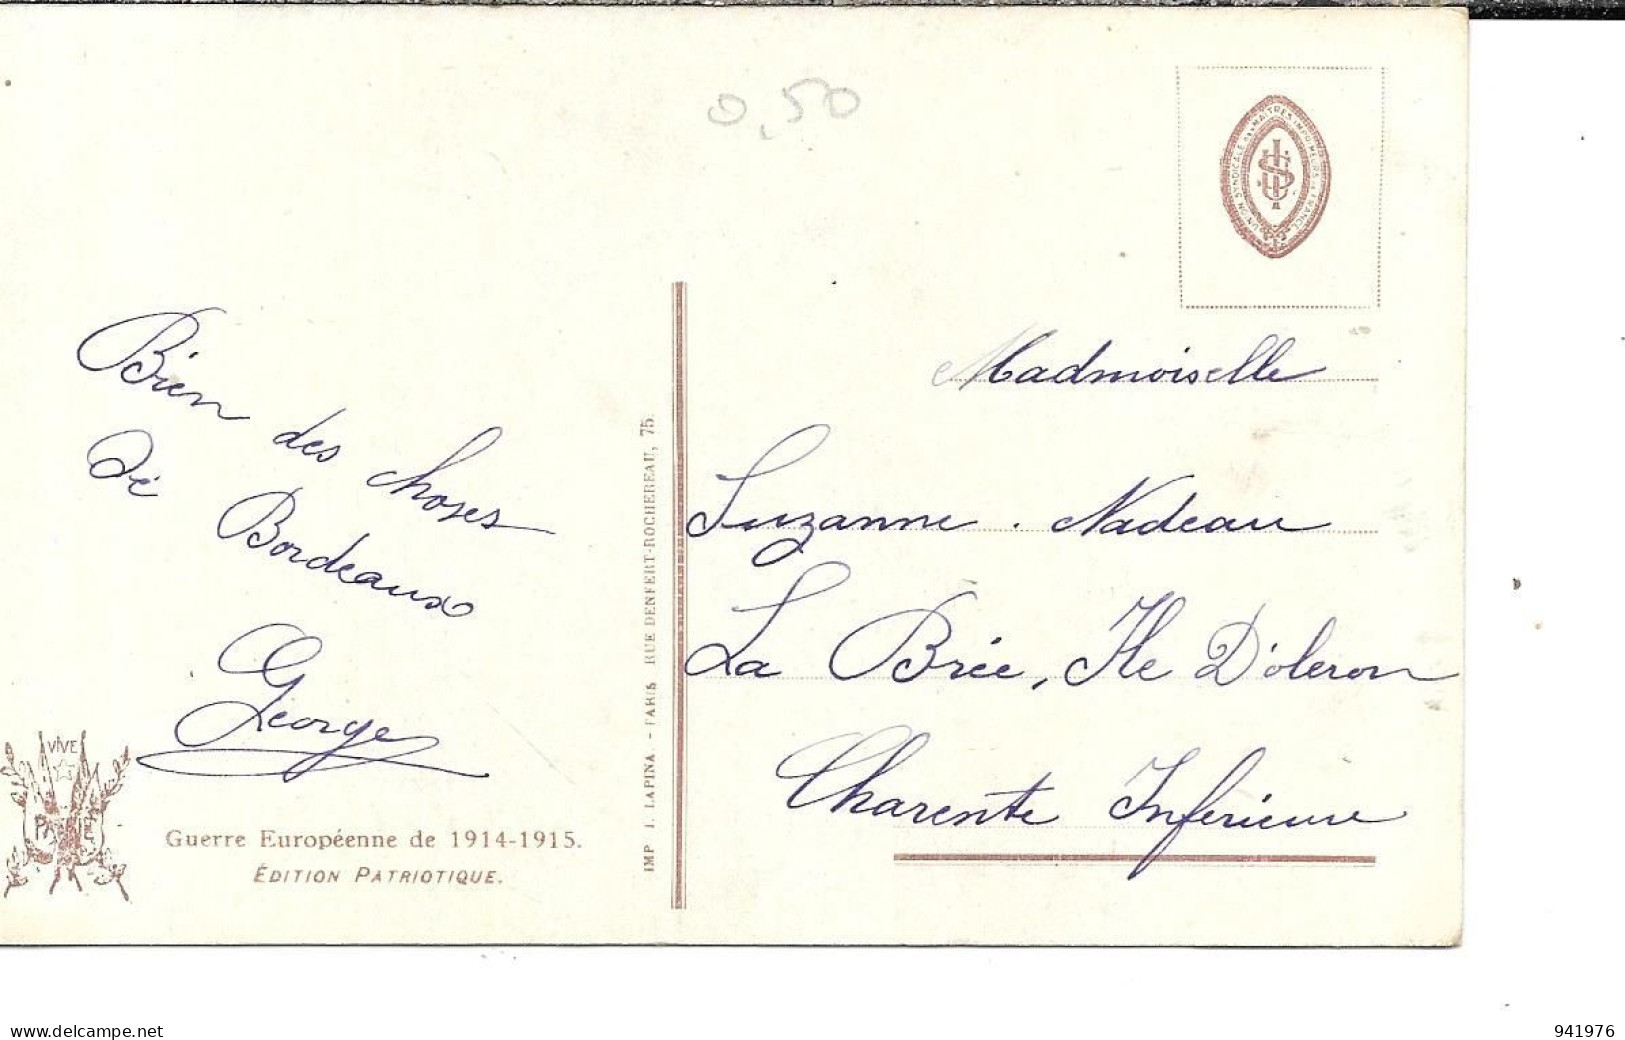 0,50
UNION SYNDICALE DES MAITRES IMPRIMEURS DE FRANCE
Bien des choses
de Bordeaux
George
Madmoiselle
Suzanne . Nadeau
La Brée, Ile D'oleron
Charente Inférieure
IMP I. LAPINA - PARIS RUE DENFERT-ROCHEREAU, 75.
VIVE
Guerre Européenne de 1914-1915.
ÉDITION PATRIOTIQUE.
www.delcampe.net
941976